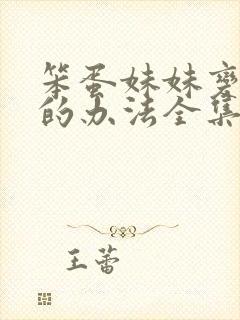 笨蛋妹妹
的办法全集
王蕾